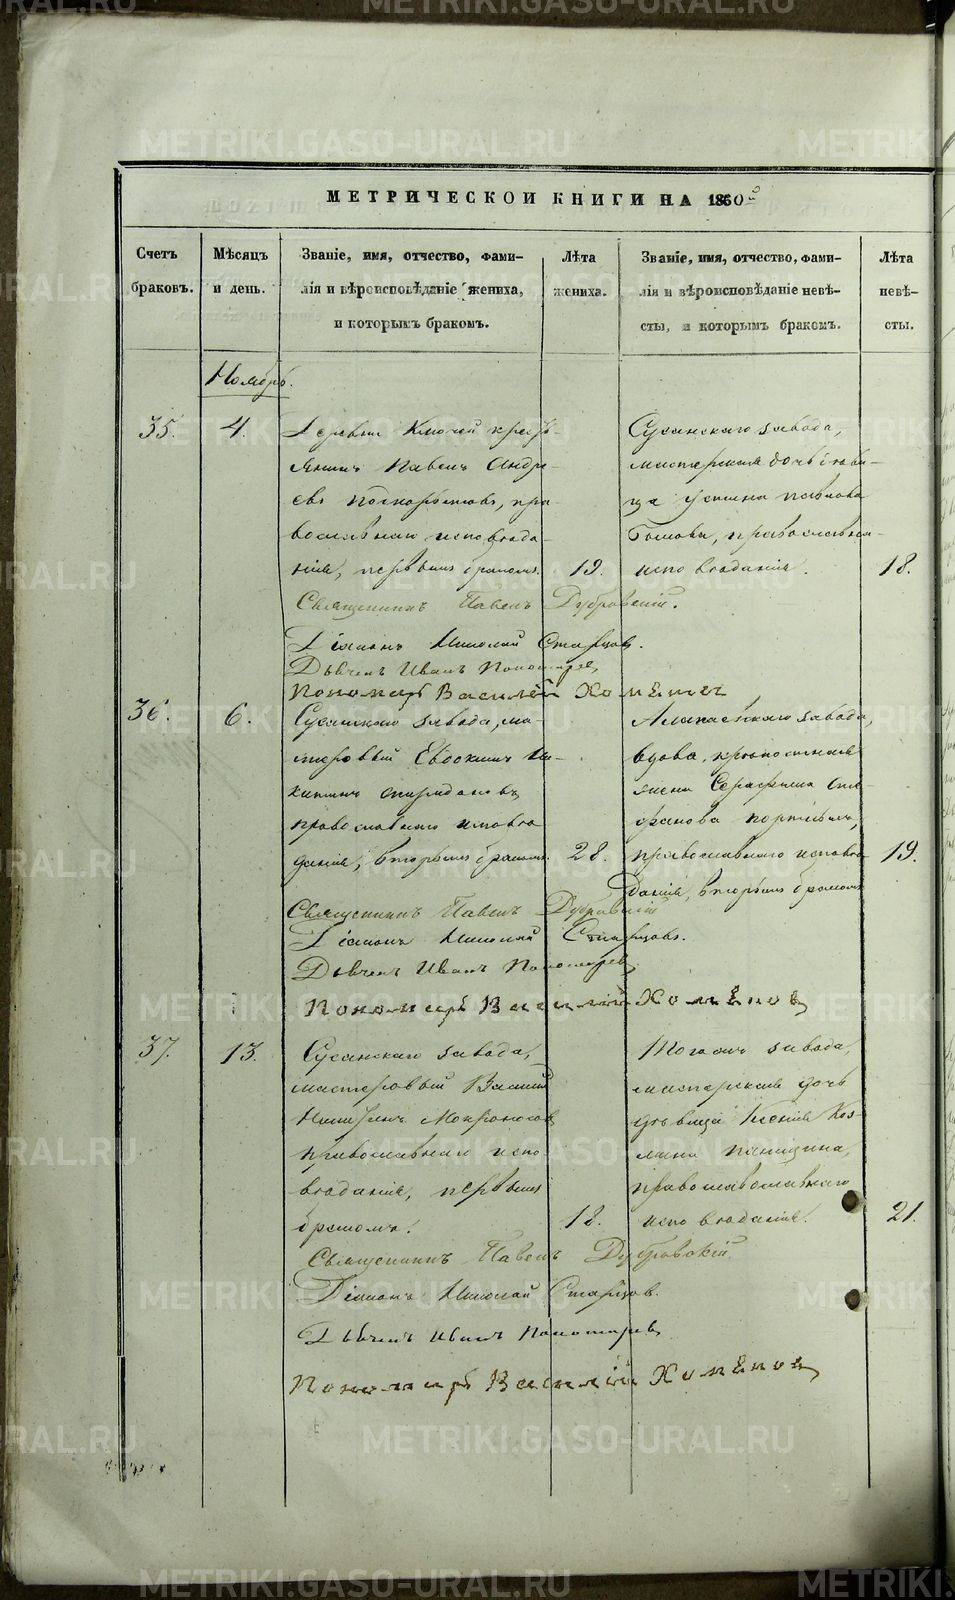 МЕТРИЧЕСКОЙ КНИГИ НА 1860й
Счетъ браковъ.
Мѣсяцъ и день.
Званіе, имя, отчество, фами-
лія и вѣроисповѣданіе жениха,
и которымъ бракомъ.
Лѣта жениха.
Званіе, имя, отчество, фами-
лія и вѣроисповѣданіе невѣ-
сты, и которымъ бракомъ.
Лѣта невѣ-
сты.
Ноябрь.
35.
4.
Деревни Ключей кресть-
янинъ Павелъ Андре-
евъ, пра-
вославнаго исповѣда-
нія, первымъ бракомъ.
19.
Сусанскаго завода,
мастерская дочь дѣви-
ца Устина Павлова
православнаго
исповѣданія.
18.
Священникъ Павелъ Дубровскій.
Діаконъ Николай Старцов.
Дьячекъ Иванъ Пономарев
Пономарь Василій Хоменов
36.
6.
Сусанскаго завода, ма-
стеровый Евдокимъ Ни-
китинъ Спиридоновъ
православнаго исповѣ-
данія, вторымъ бракомъ.
28.
Алапаевскаго завода,
вдова,
жена Серафима Сте-
фанова
православнаго исповѣ-
данія, вторымъ бракомъ
19.
Священникъ Павелъ Дубровскій
Діаконъ Николай Старцовъ.
Дьячекъ Иванъ Пономарев
Пономарь Василій Хоменов
37.
13.
Сусанскаго завода,
мастеровый Василій
Мокроносов
православнаго испо-
вѣданія, первымъ
бракомъ.
18.
Тогожъ завода,
мастерская дочь
дѣвица Ксенія Коз-
мина
православославнаго
исповѣданія.
21.
Священникъ Павелъ Дубровскій
Діаконъ Николай Старцов.
Дьячекъ Иванъ Пономарев
Пономарь Василій Хоменов
METRIKI.GASO-URAL.RU